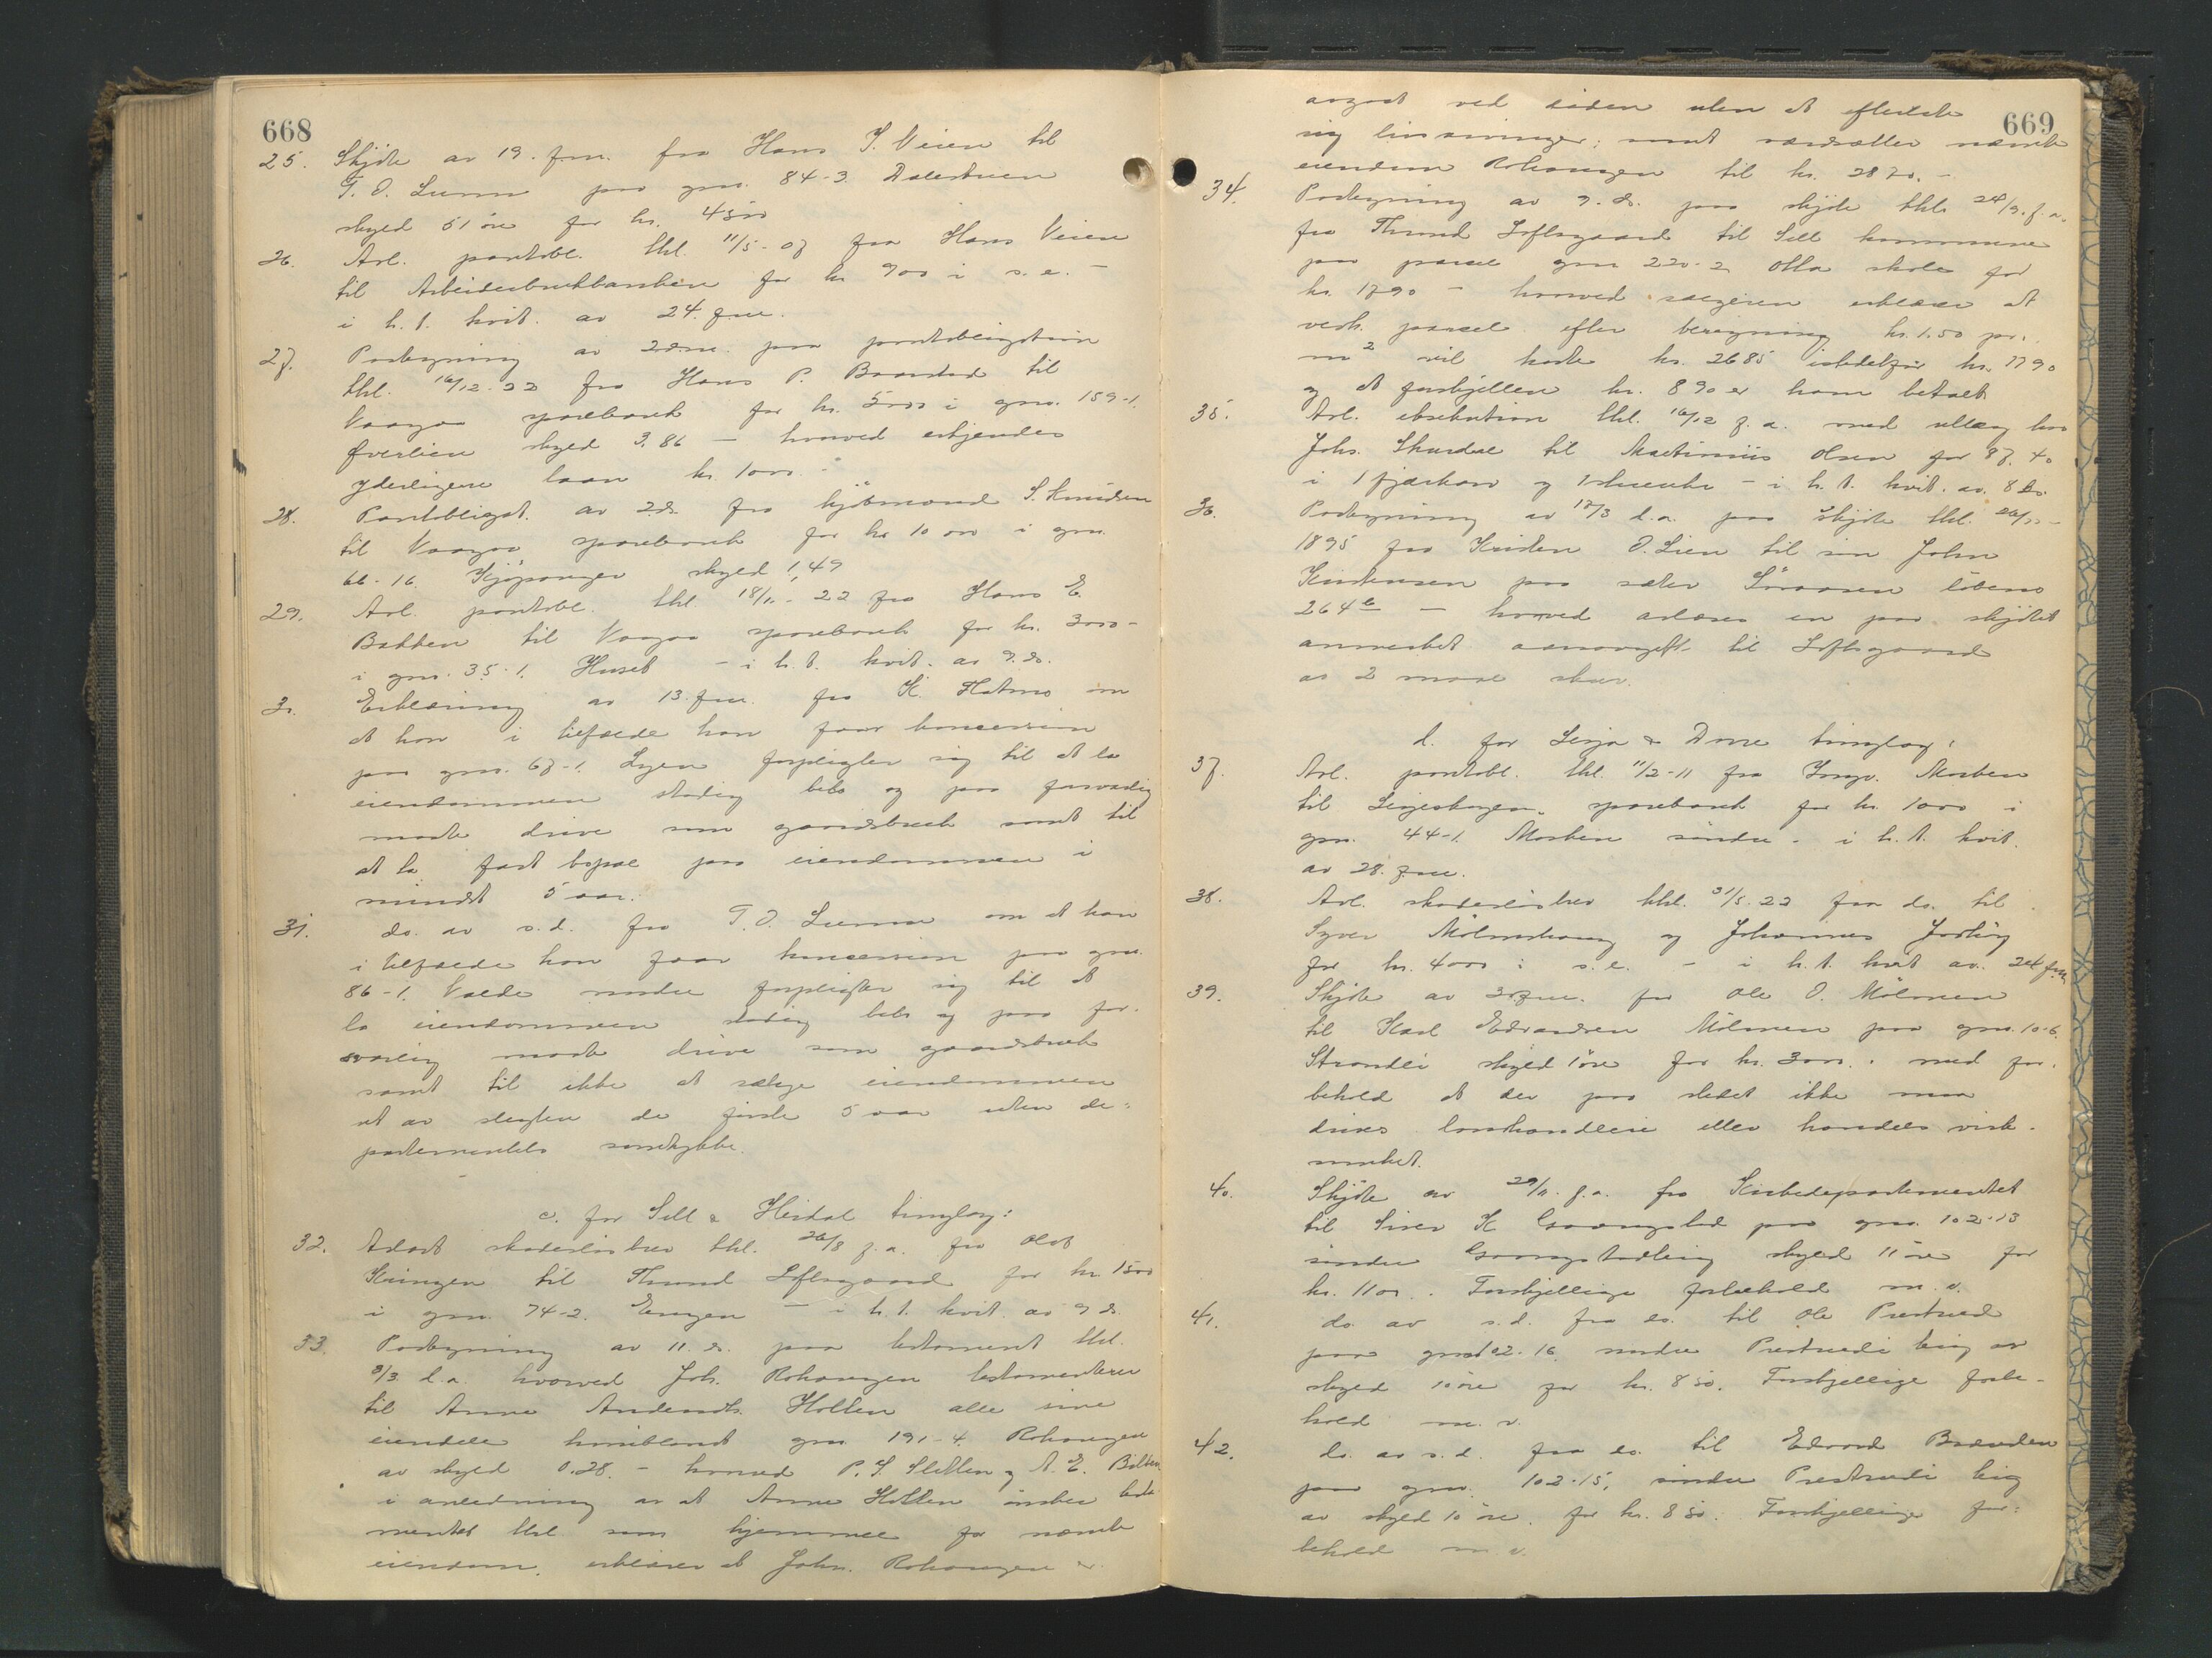 668
25. Skjöte av 19. f.m. fra Hans J. Veien til
T. O. Lunm paa gno. 84-3. Dalestuen
skyld 51 öre for kr. 4500
26. Avl. pantobl. thl. 11/5-07 fra Hans Veien
til Arbeiderbrukbanken for kr 900 i s. e. -
i h. t. kvit. av 24. f.m.
27. Paategning av 22.m. paa pantobligation
thl. 16/12-22 fra Hans P. Baarstad til
Vaagaa sparebank for kr. 5000 i gno. 159-1.
Överlien skyld 3.86 - hvorved erkjendes
yderligere laan kr. 1000.-
28. Pantobligat. av 2.ds. fra kjöbmand S. Knudsen
til Vaagaa sparebank for kr 10 000 i gno.
66-16. Kjöpanger skyld 1,49
29. Avl. pantobl. thl. 18/11-22 fra Hans E.
Bakken til Vaagaa sparebank for kr. 3000-
i gno. 35-1. Huset - i h. t. kvit. av 9. ds.
30. Erklæring av 13. f.m. fra K. Hatmo om
at han i tilfælde han faar koncession
paa gno. 67-1. Lyen forpligter sig til at la
eiendommen stadig bebo og paa forsvarlig
maate drive som gaardsbruk samt til
at ta fast bopæl paa eiendommen i
mindst 5 aar.
31. do. av s. d. fra T. O. Lunm om at han
i tilfælde han faar koncession paa gno.
86-1. Valde nordre forpligter sig til at
la eiendommen stadig bebo og paa for-
svarlig maate drive som gaardsbruk
samt til ikke at sælge eiendommen
ut av slegten de förste 5 aar uten de-
partementets samtykke.
c. for Sell & Heidal tinglag:
32. Avlöst skadeslösbrev thl. 26/8 f. a. fra Olof
Kringen til Thrond Loftsgaard for kr. 1500
i gno. 74-2. Engen - i h. t. kvit av 9 ds.
33. Paategning av 11. ds. paa testament thl.
9/3 d. a. hvorved Joh. Rohaugen testamenterer
til Anne Andersdtr. Holten alle sine
eiendele hvoriblandt gno 191-4. Rohaugen
av skyld 0.28. - hvorved P. S. Sletten og A. E. Bakken
i anledning av at Anne Holten önsker testa
mentet thl. som hjemmel for nævnte
eiendom, erklærer at Johs. Rohaugen er
669
avgaat ved döden uten at efterlate
sig livsarvinger; samt værdsætter nævnte
eiendom Rohaugen til kr. 2820. -
34. Paategning av 9. ds. paa skjöte thl. 24/9. f. a.
fra Thrond Loftsgaard til Sell kommune
paa parsel gno 220-2 Otta skole for
kr. 1790 - hvorved sælgeren erklærer at
vedk. parsel efter beregning kr. 1.50 pr.
m2 vil koste kr. 2685 istedetfor kr. 1790
og at forskjellen kr. 890 er ham betalt
35. Avl. eksekution thl. 16/12 f. a. med utlæg hos
Johs. Skurdal til Martinius Olsen for 87.40
i 1 fjærkarv og 1 - i h. t. kvit. av. 8 ds.
36. Paategning av 17/3 d. a. paa skjöte thl. 26/11-
1895 fra Kristen O. Lien til sön John
Kristensen paa sæter Söraasen löbeno
264 b - hvorved avlæses en paa skjötet
anmerket aarsavgift til Loftsgaard
av 2 maal skav.
d. for Lesja & Dovre tinglag:
37. Avl. pantobl. thl. 11/2-11 fra Ingv. Morken
til Lesjeskogen sparebank for kr. 1000 i
gno. 44-1. Morken söndre - i h. t. kvit.
av 28. f.m.
38. Avl. skadeslösbrev thl. 31/5.22 fra ds. til
Syver Mölmshaug og Johannes Jorting
for kr. 4000 i s. e. - i h. t. kvit av. 24 f.m.
39. Skjöte av 30 f.m. fra Ole O. Mölmen
til Karl Edvardsen Mölmen paa gno. 10-6.
Strandli skyld 1 öre for kr. 3000. - med for-
behold at der paa stedet ikke maa
drives landhandleri eller handels virk-
somhet.
40. Skjöte av 29/11. f. a. fra Kirkedepartementet
til Siver K Gaangstad paa gno. 102-13
söndre Gaangstadteig skyld 11 öre for
kr. 1100. - Forskjellige forbehold m. v.
41. do. av s. d. fra do. til Ole Prestrud
paa gno 102-16 nordre Prestrudteig av
skyld 10 öre for kr. 850. Forskjellige forbe-
hold m. v.
42. do. av s. d. fra do. til Edvard Brænden
paa gno. 102-15, söndre Prestrudteig
av skyld 10 öre. for kr. 850. Forskjellige for-
behold m. v.